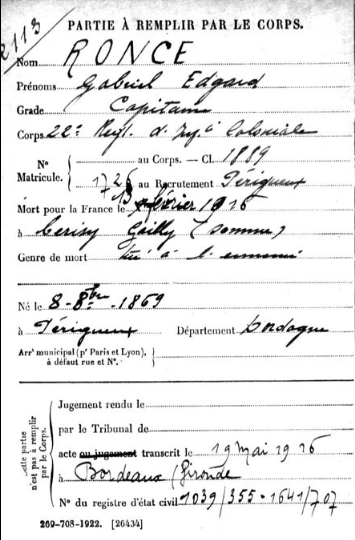 2113
PARTIE À REMPLIR PAR LE CORPS.
Nom RONCE
Prénoms Gabriel Edgard
Grade Capitaine
Corps 22e Regt. d'Inf ie Coloniale
N° Matricule. { au Corps. — Cl. 1889
1726 au Recrutement Périgueux
Mort pour la France le 13 février 1916
à Cerisy Gailly (Somme)
Genre de mort tué à l'ennemi
Né le 8 - 8bre - 1869
à Périgueux Département Dordogne
Arrt municipal (pr Paris et Lyon), à défaut rue et N°. }
Cette partie n'est pas à remplir par le Corps.
Jugement rendu le
par le Tribunal de
acte ou jugement transcrit le 19 mai 1916
à Bordeaux (Gironde
N° du registre d'état civil 1039/355 - 1641/707
269-708-1922. [26434]